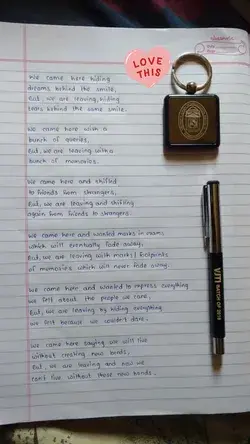 LOVE
THIS
We came here hiding
dreams behind the smile,
But we are leaving, hiding
tears behind the same smile.
We came here with a
bunch of queries,
But, we are leaving with a
bunch of memories.
We came here and shifted
to friends from strangers,
But, we are leaving and shifting
again from friends to strangers.
We came here and wanted marks in exams
which will eventually fade away,
But, we are leaving with marks/footprints
of memories which will never fade away.
We came here and wanted to express everything
we felt about the people we care,
But, we are leaving by hiding everything
we felt because we couldn't dare.
We came here saying we will live
without creating new bonds,
But, we are leaving and now we
can't live without those new bonds.
VJTI
BATCH OF 2019